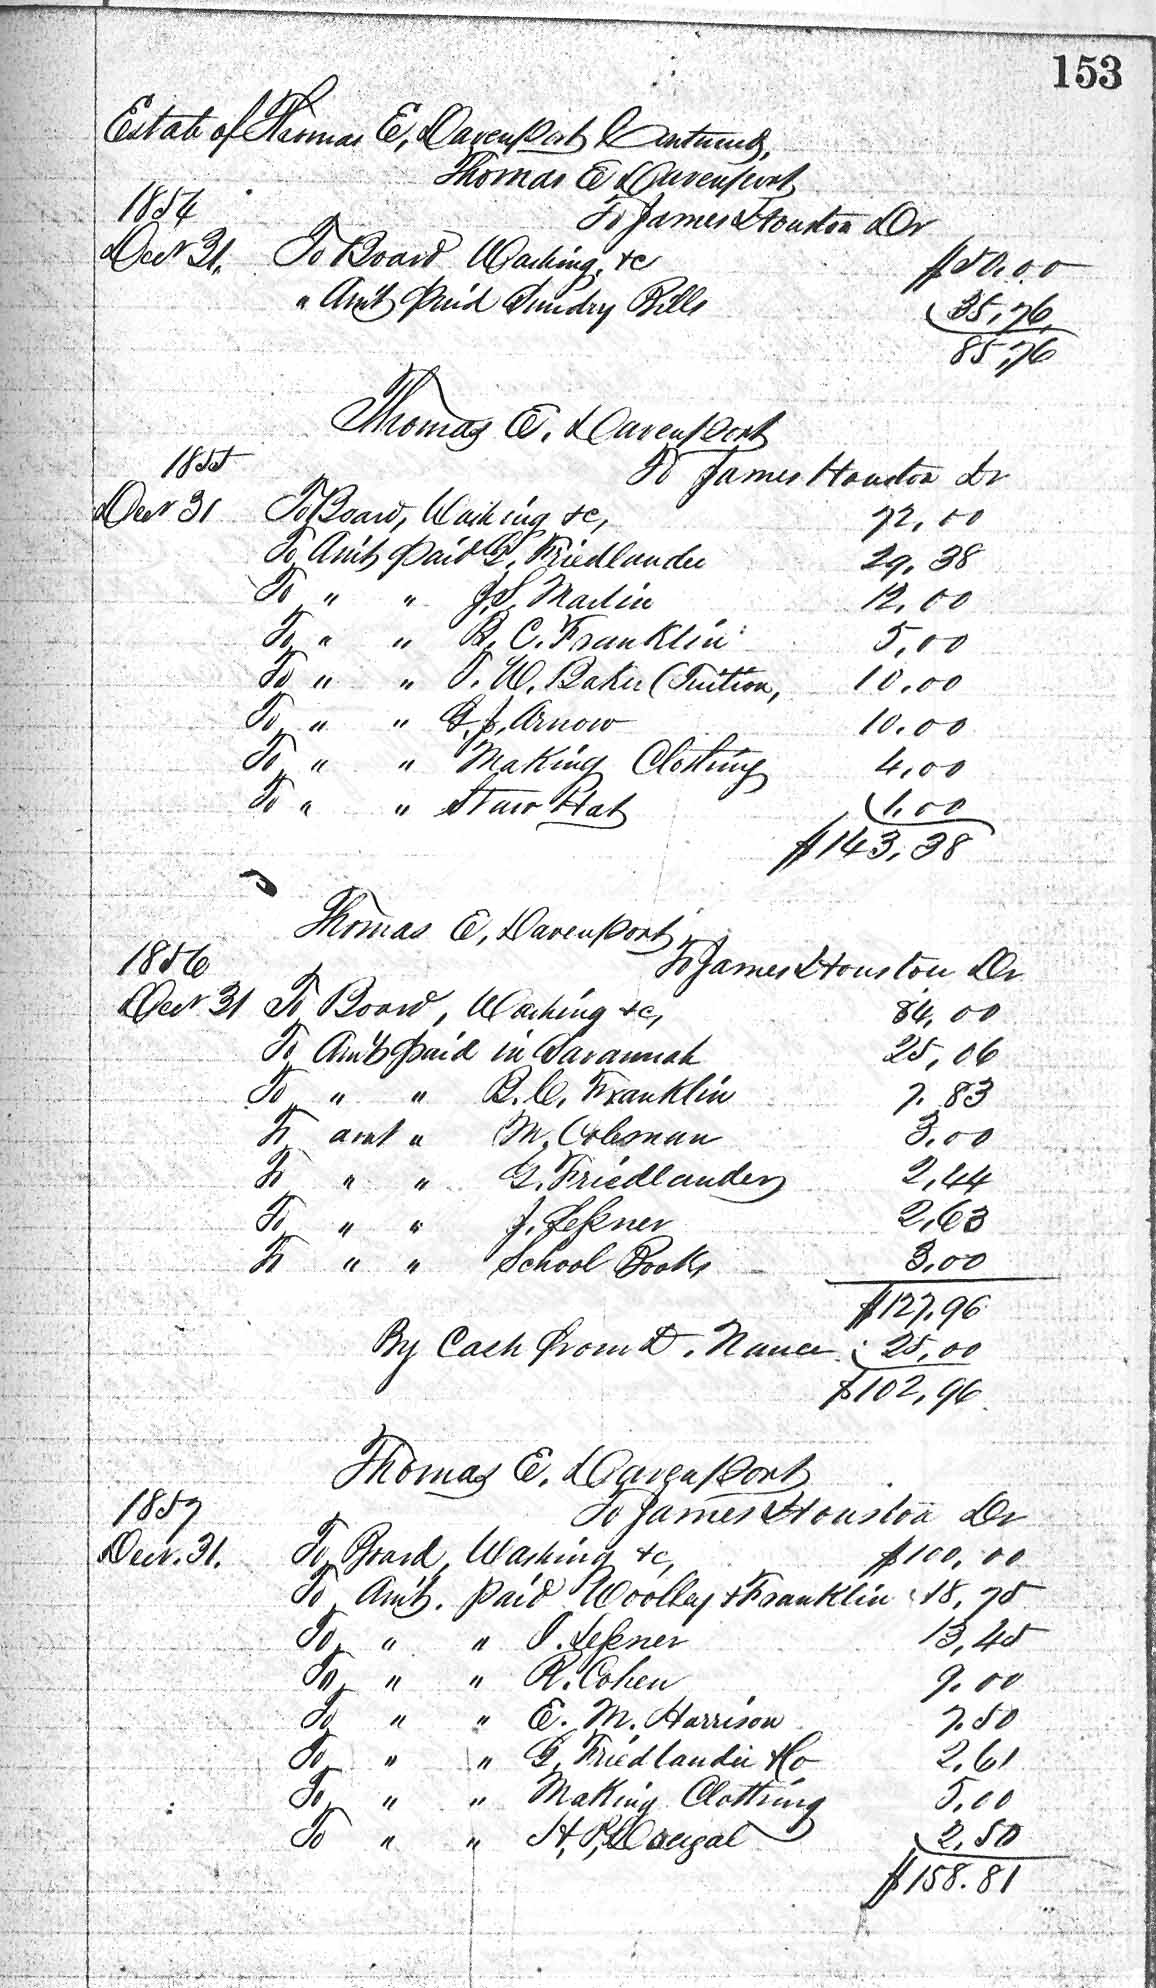 153
Estate of Thomas E. Davenport Continued,
Thomas E Davenport
1854 To James Houston Dr
Decr 31, To Board Washing, &c $50.00
" Amt paid Sundry Bills 35,76
85,76
Thomas E. Davenport
1855 To James Houston Dr
Decr 31 To Board, Washing &c, 72,00
To Amt paid G. Friedlander 29,38
To " " J.S. Marlin 12,00
To " " B. C. Franklin 5,00
To " " T. W. Baker (Tuition, 10.00
To " " G. J. Arnow 10.00
To " " Making Clothing 4,00
To " " Straw Hat 1,00
$143,38
Thomas E, Davenport,
1856 To James Houston Dr
Decr 31 To Board, Washing &c, 84,00
To Amt paid in Savannah 25,06
To " " B. C. Franklin 7.83
To amt " M. Coleman 3,00
To " " G. Friedlander 2,44
To " " J. Lessner 2,63
To " " School Books 3,00
$127,96
By Cash from D. Nance 25,00
$102,96
Thomas E. Davenport
1857 To James Houston Dr
Decr. 31. To Board, Washing &c, $100,00
To Amt. paid Woolley & Franklin 18,75
To " " I. Lessner 13,45
To " " R. Cohen 9.00
To " " E. M. Harrison 7.50
To " " G, Friedlander & Co 2,61
To " " Making Clothing 5,00
To " " H, P, 2,50
$158.81